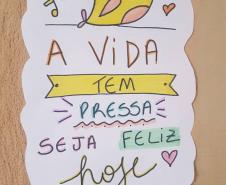 A VIDA
TEM
PRESSA
SEJA FELIZ
hoje